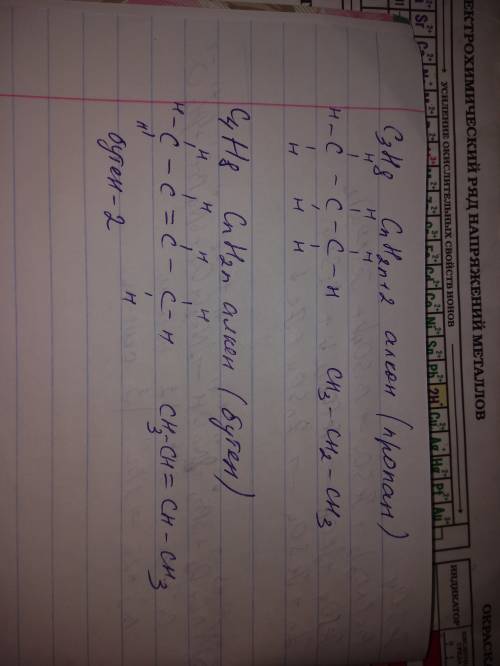 ЭЛЕКТРОХИМИЧЕСКИЙ РЯД НАПРЯЖЕНИЙ МЕТАЛЛОВ
УСИЛЕНИЕ ОКИСЛИТЕЛЬНЫХ СВОЙСТВ ИОНОВ
Ni Sn Pb 2H Cu Ag Hg Pt Au
ИНДИКАТОР
ОКРАСК
C3H8 CnH2n+2 алкан (пропан)
H H H
H-C-C-C-H CH3-CH2-CH3
H H H
C4H8 CnH2n алкен (бутен)
H H H H
H-C-C=C-C-H CH3-CH=CH-CH3
H H
бутен-2